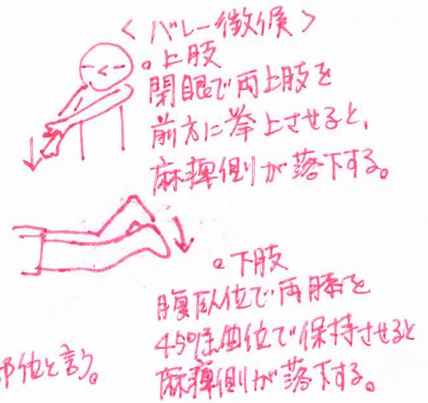 ＜バレー徴候＞
。上肢
閉眼で両上肢を
前方に挙上させると、
麻痺側が落下する。
。下肢
腹臥位で両膝を
45°屈曲位で保持させると
麻痺側が落下する。
部位と言う。